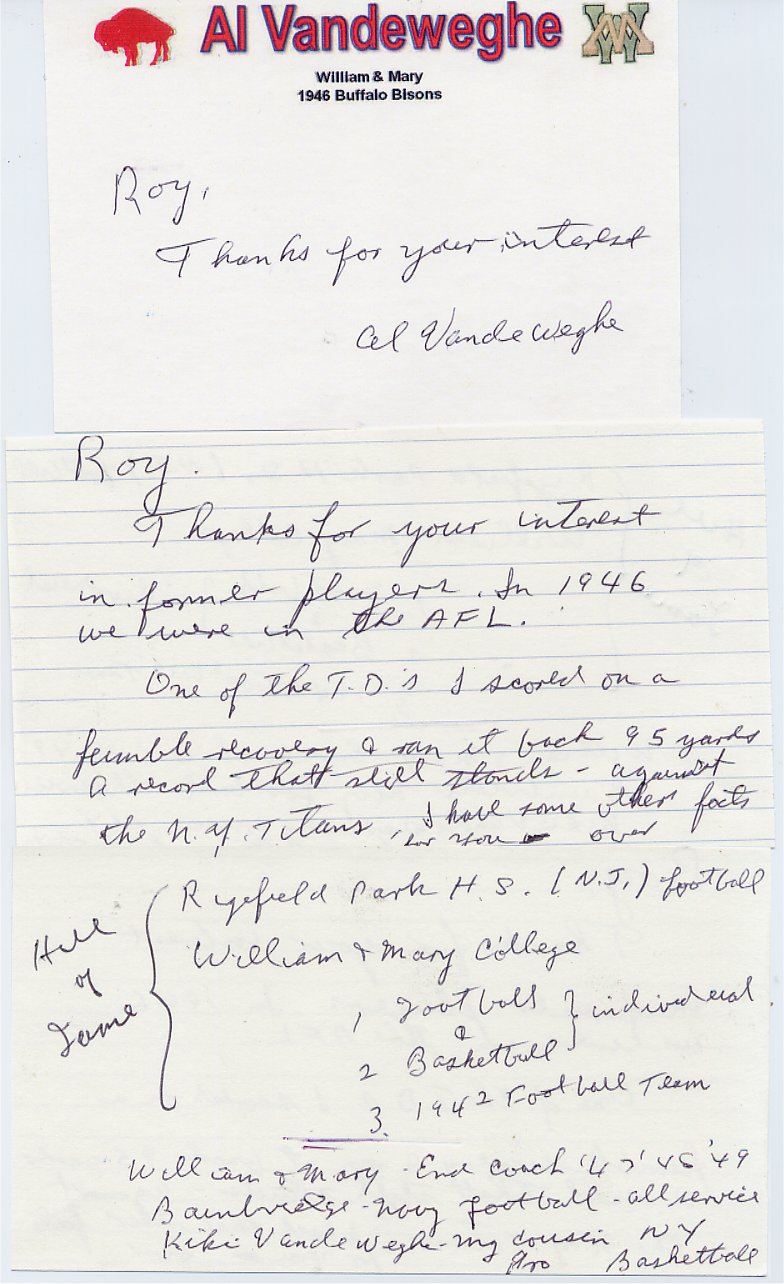 Al Vandeweghe
William & Mary
1946 Buffalo Bisons
Roy,
Thanks for your interest
Al Vandeweghe
Roy.
Thanks for your interest
in former players. In 1946
we were in the AFL.
One of the T.D.'s I scored on a
fumble recovery & ran it back 95 yards
a record that still stands - against
the N.Y. Titans, I have some other facts
for you - over
Hall
of
Fame
Park H.S. (N.J.) football
William & Mary College
1, Football } individual.
&
2 Basketball
3. 1942 Football Team
William & Mary - End coach '47 '48 '49
Bainbridge - Navy football - all service
Kiki Vandeweghe - my cousin NY
Pro Basketball